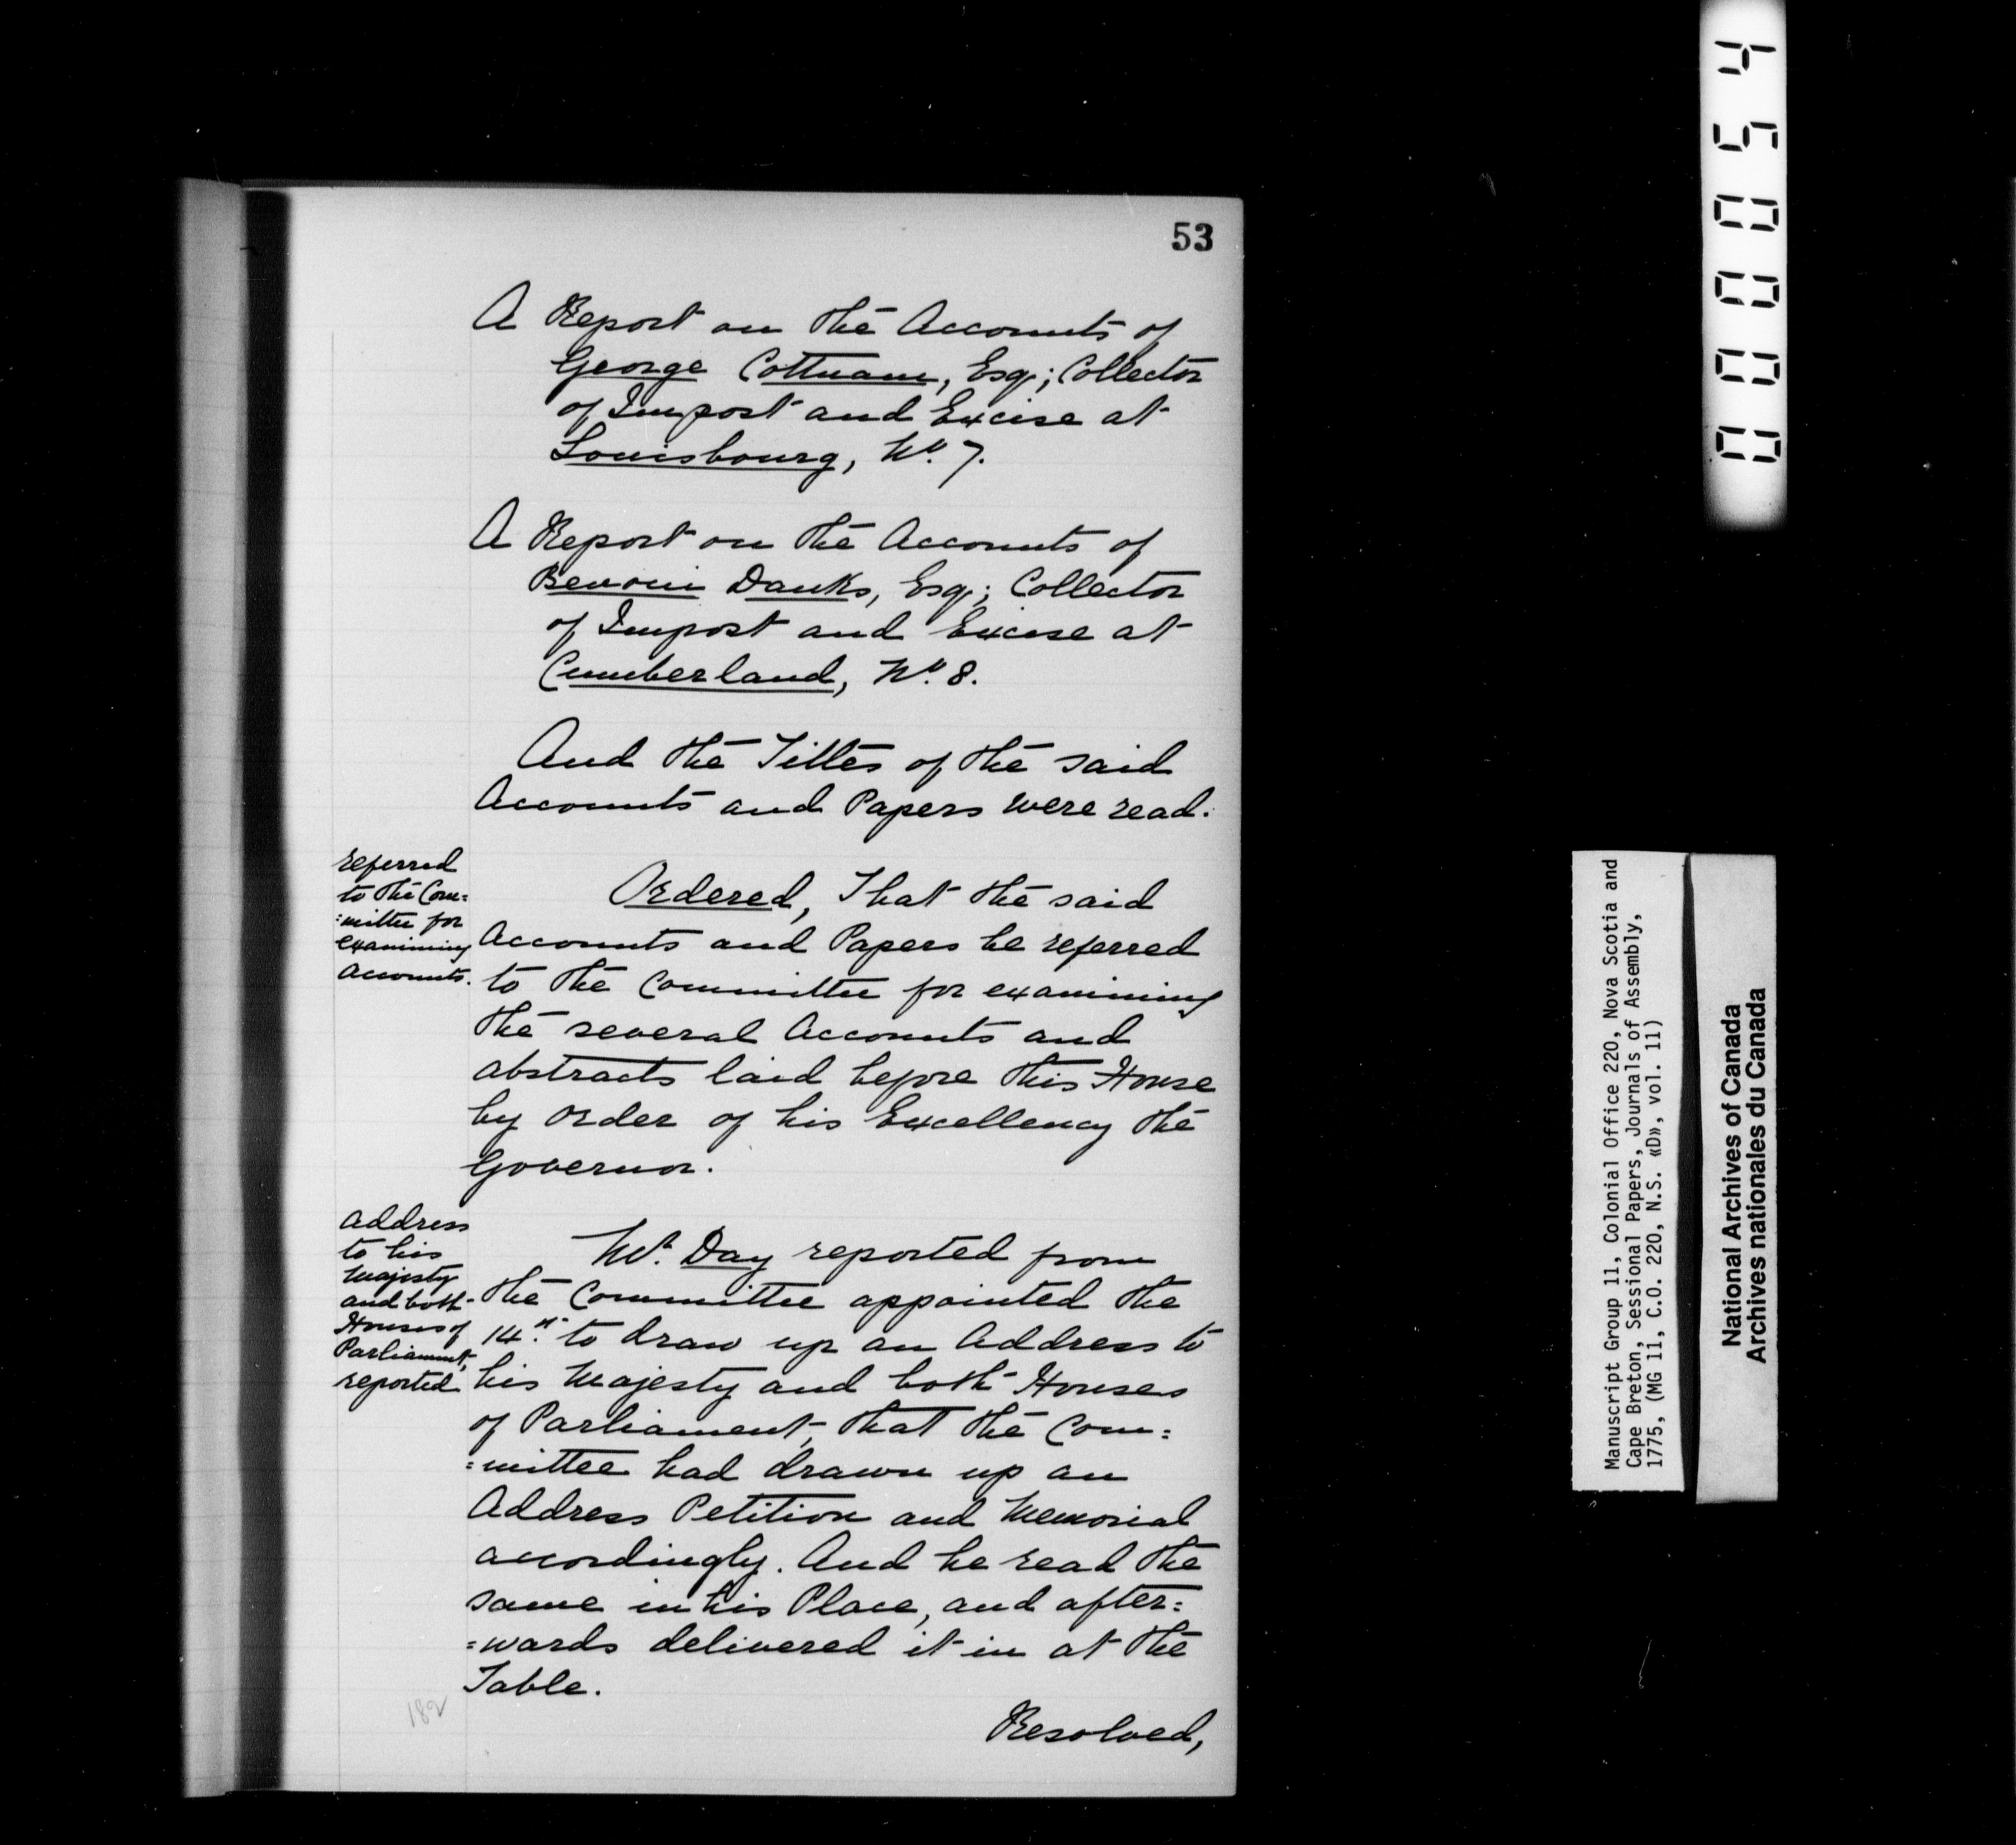 53
A Report on the Accounts of
George Cottnam, Esq; Collector
of Impost and Excise at
Louisbourg, No. 7.
A Report on the Accounts of
Benoni Danks, Esq; Collector
of Impost and Excise at
Cumberland, No. 8.
And the Titles of the said
Accounts and Papers were read.
referred
to the Com=
=mittee for
examining
accounts.
Ordered, That the said
Accounts and Papers be referred
to the Committee for examining
the several Accounts and
abstracts laid before this House
by order of his Excellency the
Governor.
address
to his
Majesty
and both
Houses of
Parliament,
reported
Mr. Day reported from
the Committee appointed the
14th. to draw up an Address to
his Majesty and both Houses
of Parliament, that the Com=
=mittee had drawn up an
Address Petition and Memorial
accordingly. And he read the
same in his Place, and after=
=wards delivered it in at the
Table.
182
Resolved,
000054
Manuscript Group 11, Colonial Office 220, Nova Scotia and
Cape Breton, Sessional Papers, Journals of Assembly,
1775, (MG 11, C.O. 220, N.S. «D», vol. 11)
National Archives of Canada
Archives nationales du Canada